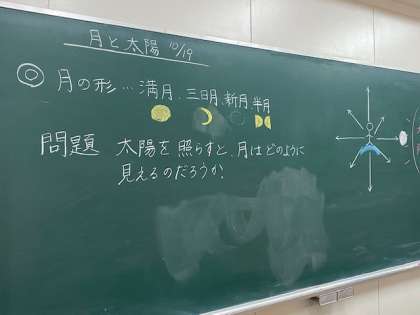 月と太陽 10/19
◎ 月の形…満月、三日月、新月、半月
問題 太陽を照らすと、月はどのように
見えるのだろうか。